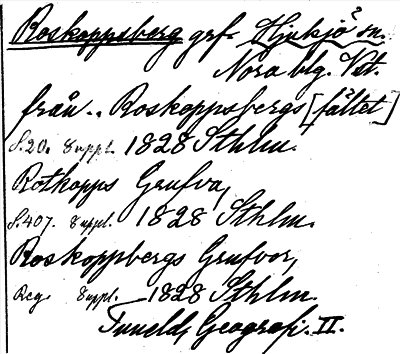 Roskoppsberg grf. Hjulsjö? sn.
Nora blg. Vst.
från.. Roskoppsbergs [fältet]
S. 20. Suppl. 1828 Sthlm.
Rotkopps Grufva,
S. 407. Suppl. 1828 Sthlm.
Roskoppbergs Grufvor,
Reg. Suppl. 1828 Sthlm.
Tuneld, Geografi. II.